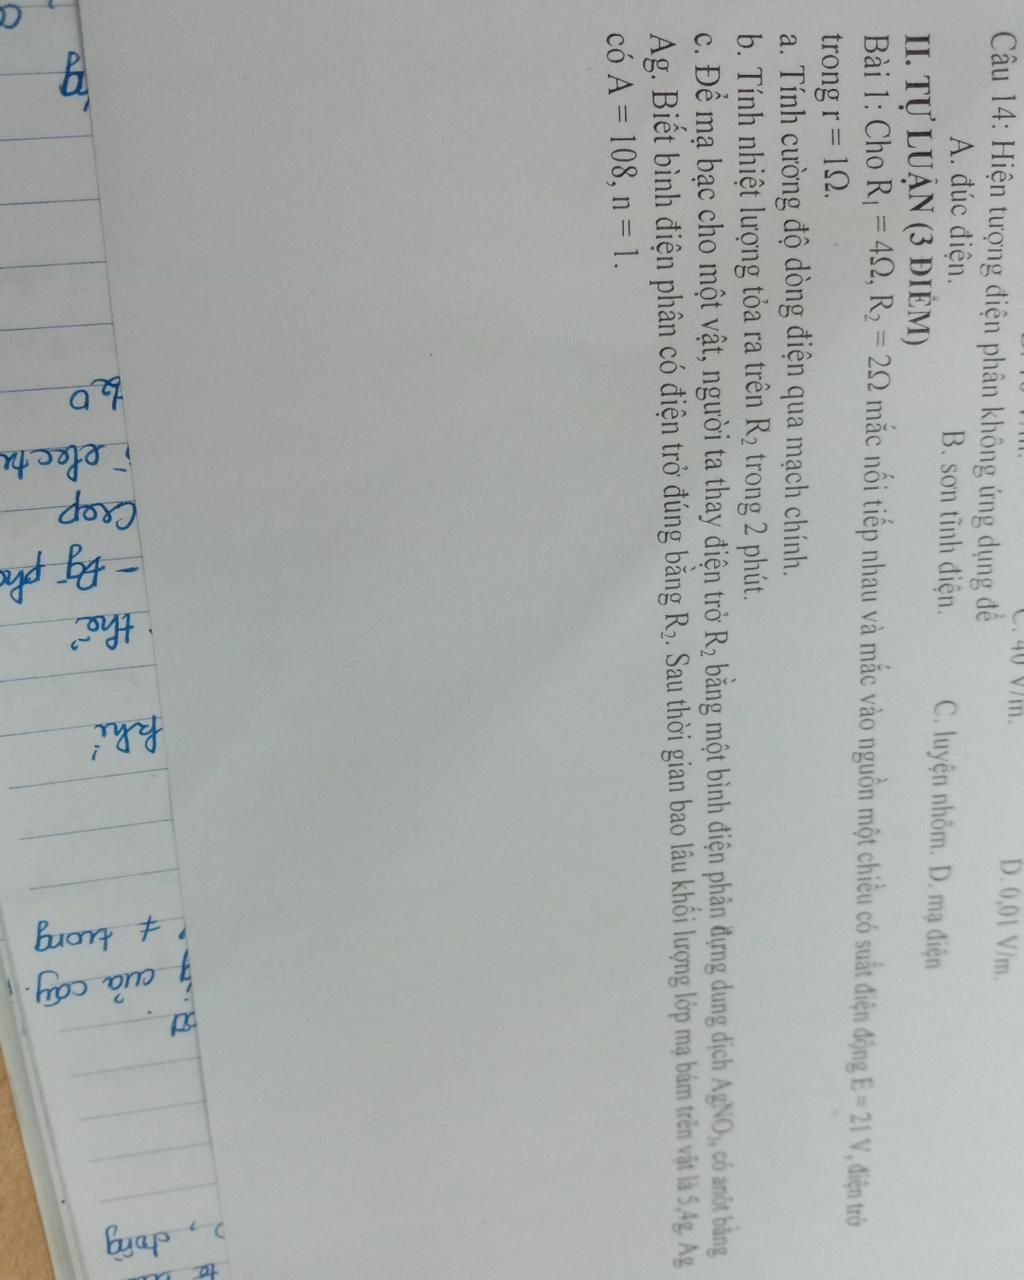 C. 40 V/m. D. 0,01 V/m.
Câu 14: Hiện tượng điện phân không ứng dụng để
A. đúc điện. B. sơn tĩnh điện. C. luyện nhôm. D. mạ điện
II. TỰ LUẬN (3 ĐIỂM)
Bài 1: Cho R₁ = 4Ω, R₂ = 2Ω mắc nối tiếp nhau và mắc vào nguồn một chiều có suất điện động E = 21 V, điện trở
trong r = 1Ω.
a. Tính cường độ dòng điện qua mạch chính.
b. Tính nhiệt lượng tỏa ra trên R₂ trong 2 phút.
c. Để mạ bạc cho một vật, người ta thay điện trở R₂ bằng một bình điện phân đựng dung dịch AgNO₃, có anôt bằng
Ag. Biết bình điện phân có điện trở đúng bằng R₂. Sau thời gian bao lâu khối lượng lớp mạ bám trên vật là 5,4g. Ag
có A = 108, n = 1.
electr
thể
khi
≠ trong
của cây